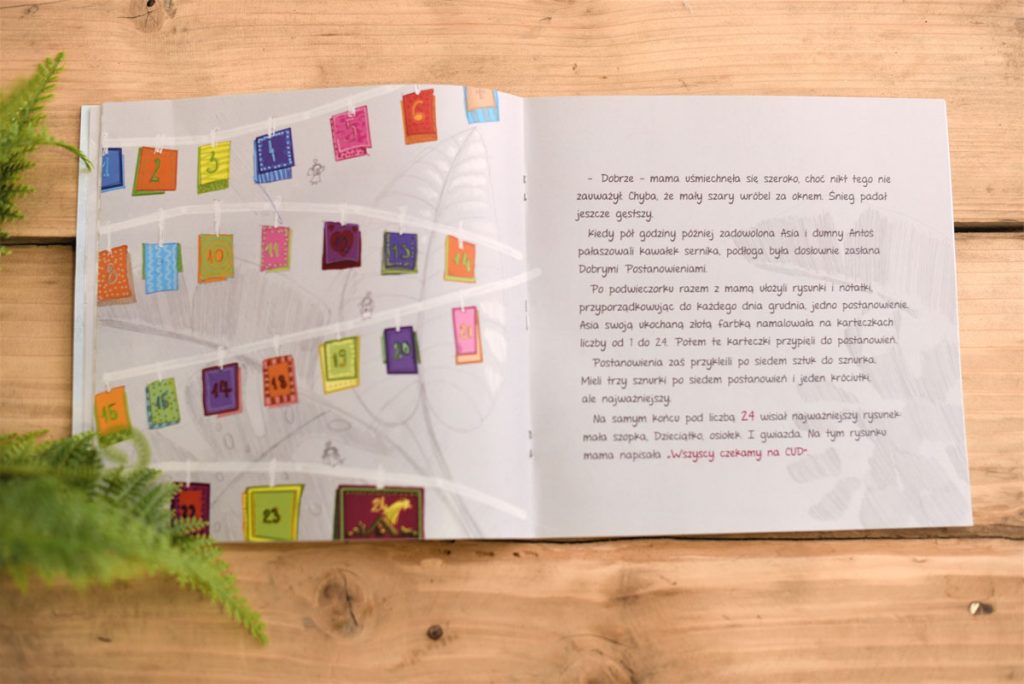 1
2
3
4
5
6
7
8
9
10
11
12
13
14
15
16
17
18
19
20
21
22
23
24
- Dobrze - mama uśmiechnęła się szeroko, choć nikt tego nie
zauważył. Chyba, że mały szary wróbel za oknem. Śnieg padał
jeszcze gęstszy.
Kiedy pół godziny później zadowolona Asia i dumny Antoś
pałaszowali kawałek sernika, podłoga była dosłownie zasłana
Dobrymi Postanowieniami.
Po podwieczorku razem z mamą ułożyli rysunki i notatki,
przyporządkowując do każdego dnia grudnia, jedno postanowienie.
Asia swoją ukochaną złotą farbką namalowała na karteczkach
liczby od 1 do 24. Potem te karteczki przypięli do postanowień.
Postanowienia zaś przykleili po siedem sztuk do sznurka.
Mieli trzy sznurki po siedem postanowień i jeden króciutki,
ale najważniejszy.
Na samym końcu pod liczbą 24 wisiał najważniejszy rysunek
mała szopka, Dzieciątko, osiołek. I gwiazda. Na tym rysunku
mama napisała „Wszyscy czekamy na CUD".